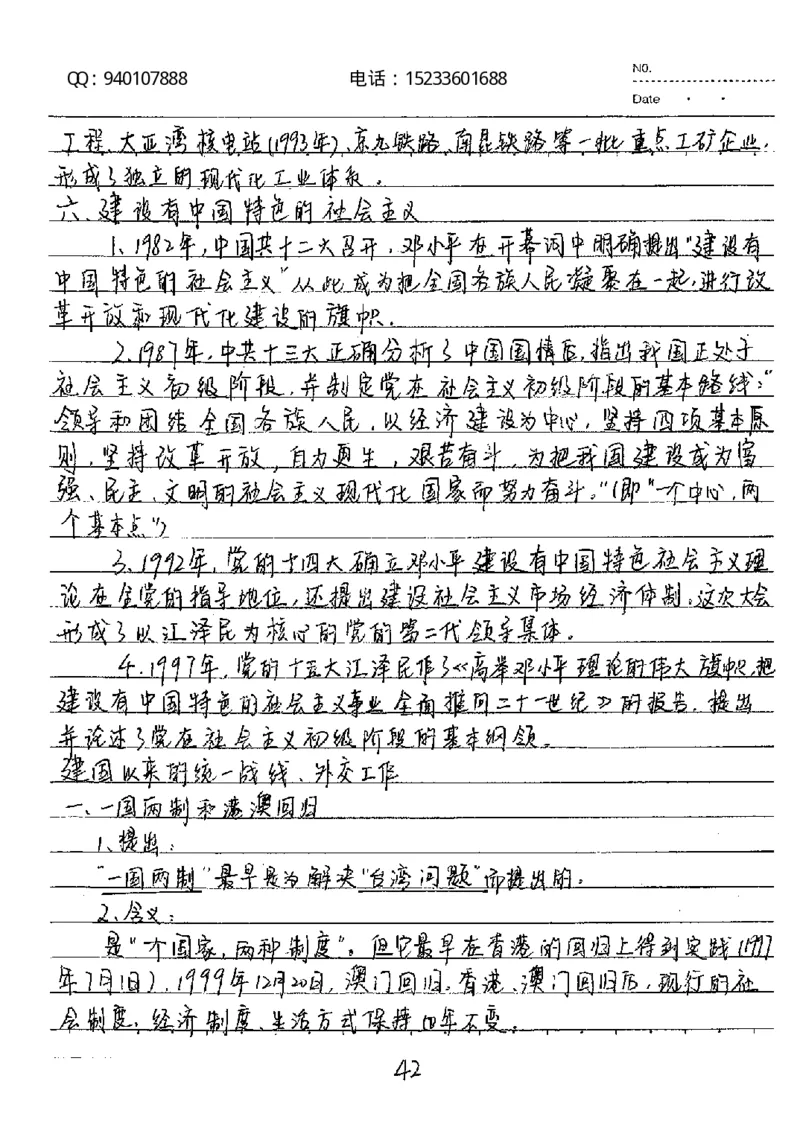 QQ：940107888 电话：15233601688 NO.
Date · ·
工程、大亚湾核电站(1993年)、京九铁路、南昆铁路等一批重点工矿企业，
形成了独立的现代化工业体系。
六、建设有中国特色的社会主义
1、1982年，中国共十二大召开，邓小平在开幕词中明确提出"建设有
中国特色的社会主义"从此成为把全国各族人民凝聚在一起，进行改
革开放和现代化建设的旗帜．
2、1987年，中共十三大正确分析了中国国情后，指出我国正处于
社会主义初级阶段，并制定党在社会主义初级阶段的基本路线："
领导和团结全国各族人民，以经济建设为中心，坚持四项基本原
则，坚持改革开放，自力更生，艰苦奋斗，为把我国建设成为富
强、民主、文明的社会主义现代化国家而努力奋斗。"（即"一个中心，两
个基本点"）
3、1992年，党的十四大确立邓小平建设有中国特色社会主义理
论在全党的指导地位，还提出建设社会主义市场经济体制，这次大会
形成了以江泽民为核心的党的第二代领导集体。
4、1997年，党的十五大江泽民作了《高举邓小平理论的伟大旗帜，把
建设有中国特色的社会主义事业全面推向二十一世纪》的报告．提出
并论述了党在社会主义初级阶段的基本纲领。
建国以来的统一战线、外交工作
一、一国两制和港澳回归
1、提出：
"一国两制"最早是为解决"台湾问题"而提出的．
2、含义：
是"一个国家，两种制度"。但它最早在香港的回归上得到实践(1997
年7月1日)，1999年12月20日，澳门回归。香港、澳门回归后，现行的社
会制度，经济制度、生活方式保持 年不变。
42